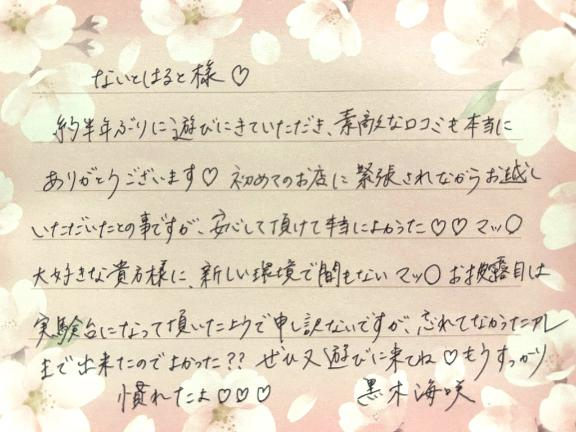 ないとはると様♡
約半年ぶりに遊びにきていただき、素敵な口コミも本当に
ありがとうございます♡ 初めてのお店に緊張されながらお越し
いただいたとの事ですが、安心して頂けて本当によかった♡♡ マッ〇
大好きな貴方様に、新しい環境で間もない マッ〇 お披露目は
実験台になって頂いたようで申し訳ないですが、忘れてなかったアレ
まで出来たのでよかった?? ぜひ又遊びに来てね♡もうすっかり
慣れたよ♡♡♡ 黒木海咲